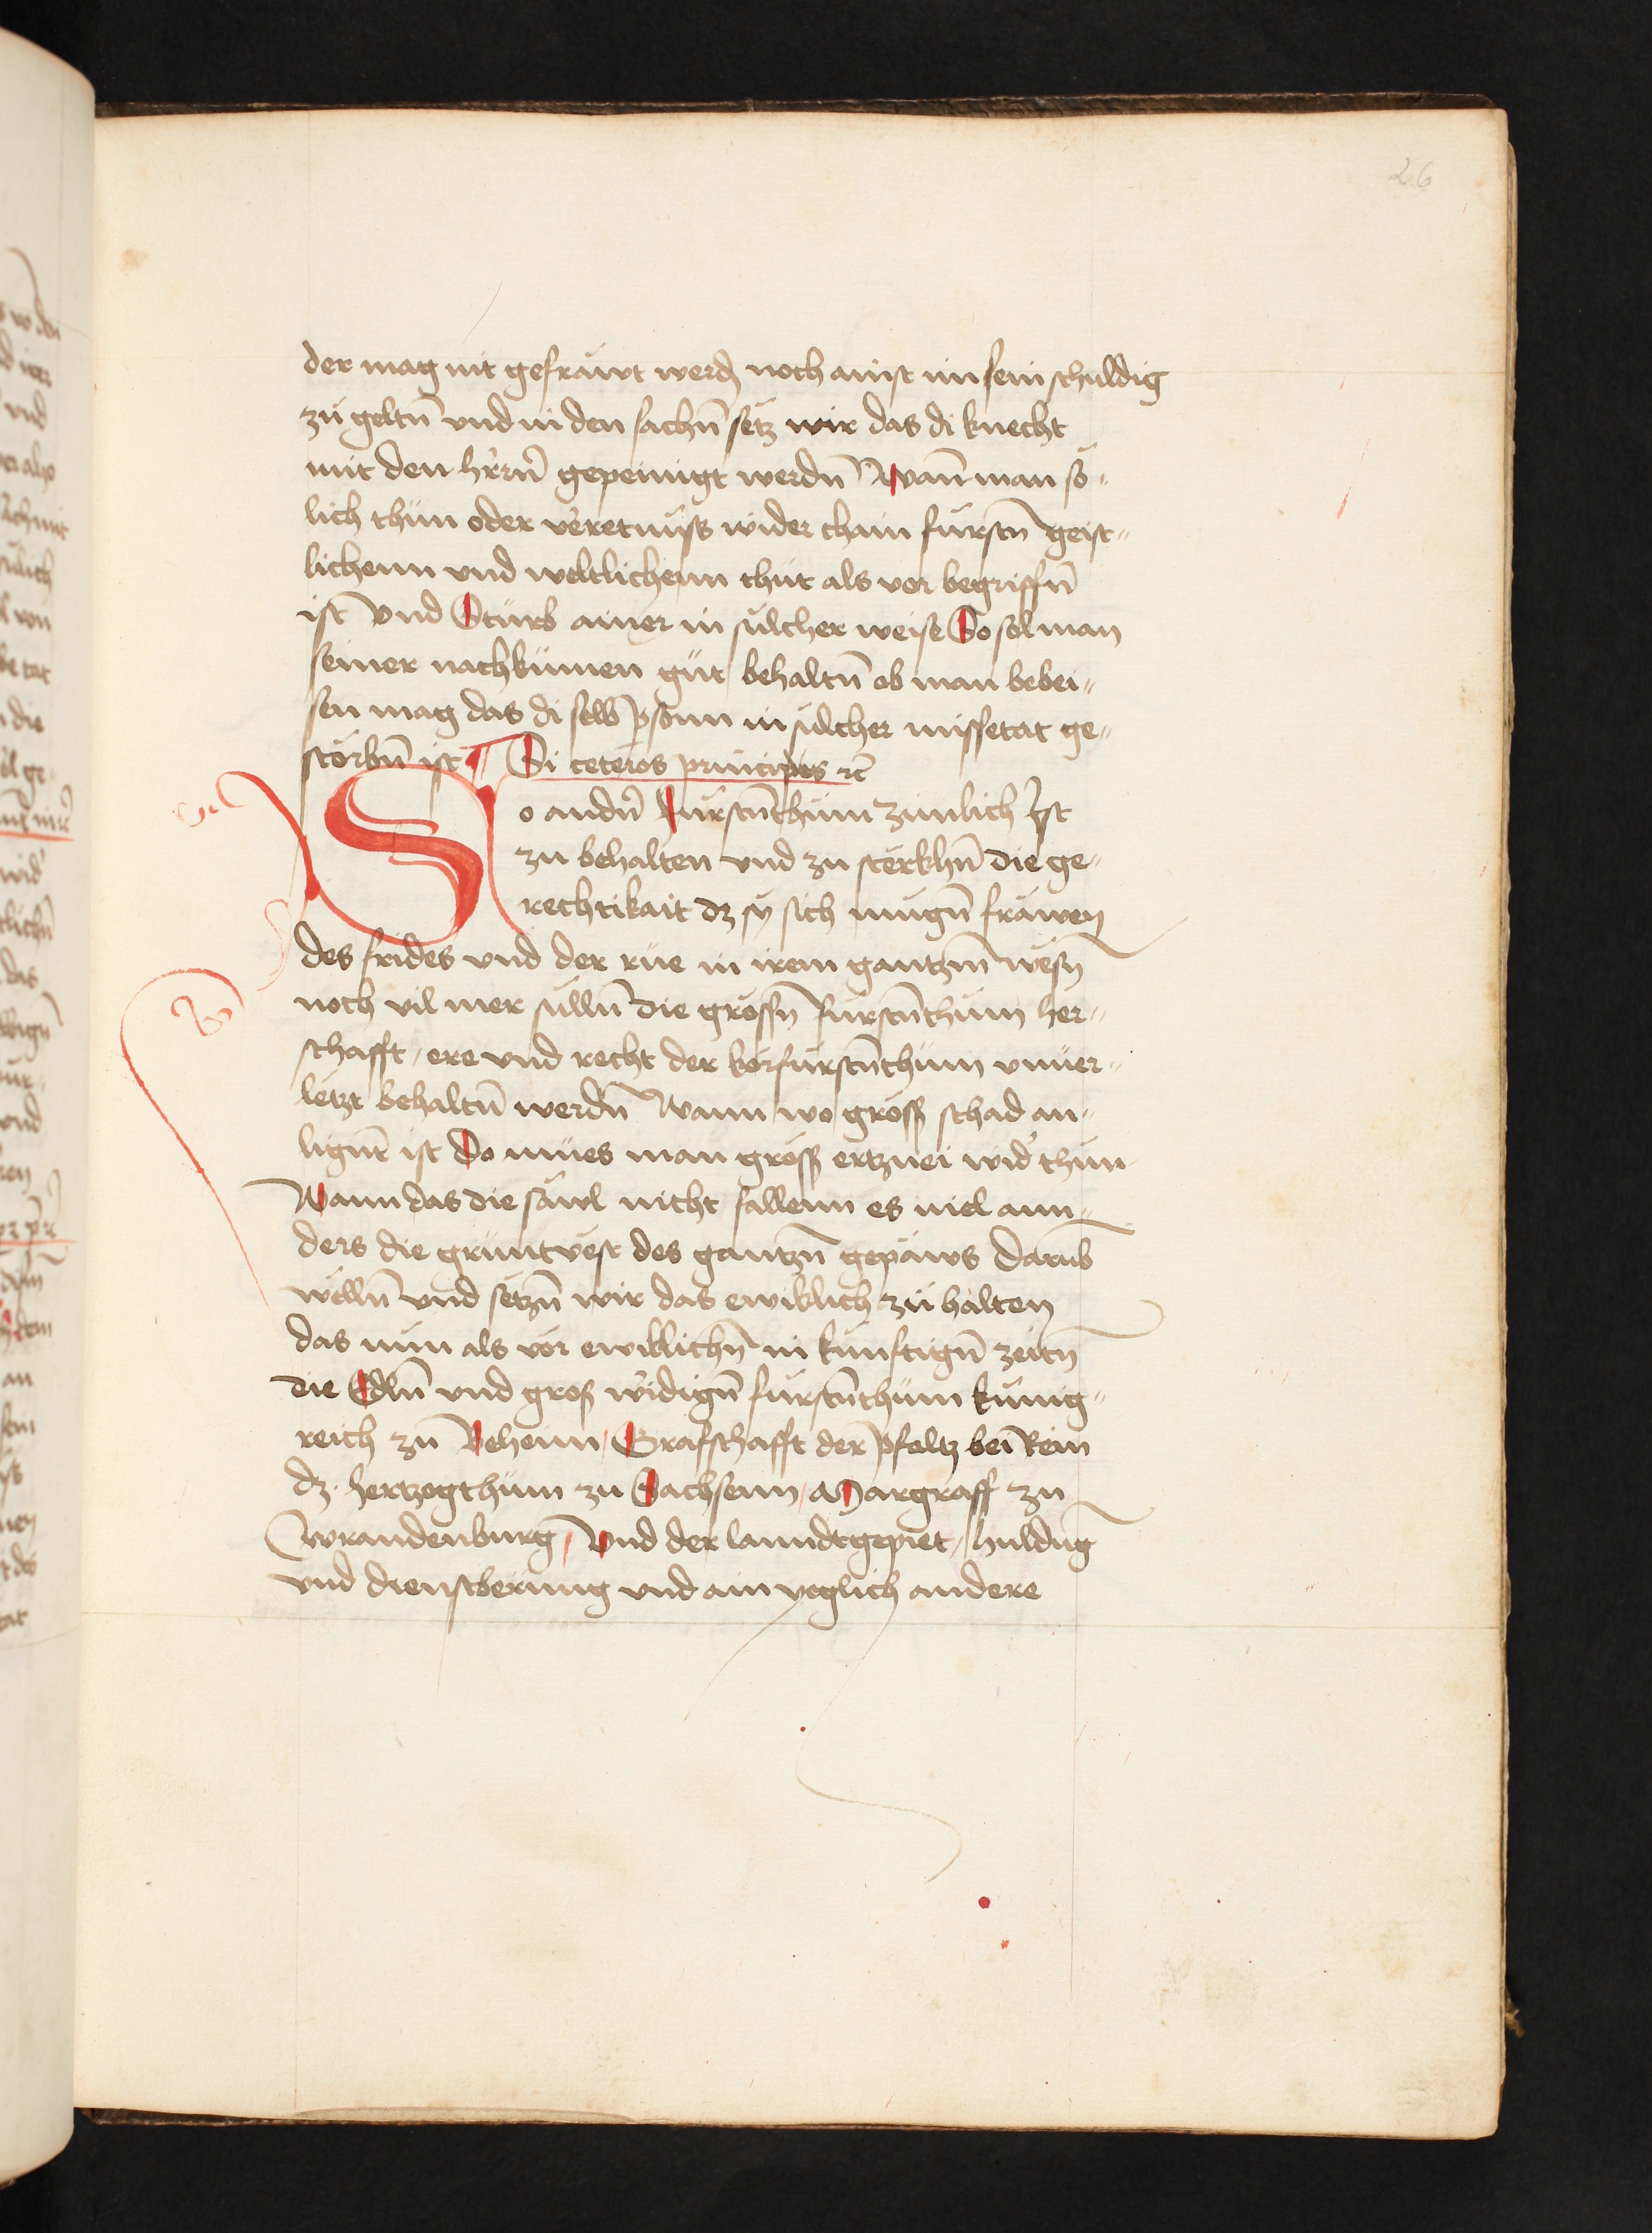 26
der mag nit gefräwt werdn noch ainst im sein schuldig
zu geltn̄ vnd in den sachn̄ setz wir das di knecht
mit den hr̄rn̄ gepeinigt werdn̄ Wann man so-
lich thun oder verretnuss wider chain fürstn̄ geist-
lichenn vnd weltlichenn thut als vor begriffn̄
ist Vnd Stürb ainer in sulcher weise So sol man
seiner nachkumen güt behaltn̄ ob man bebei-
sen mag das di selb ꝑsonn in sulcher missetat ge-
storbn̄ ist ¶ Si ceteros principes ꝛc̄
So andn̄ Fürstn̄thum zimlich Ist
zu behalten vnd zu sterkhn̄ die ge-
rechtikait dz sy sich mugn̄ fräwen
des frides vnd der rüe in irem gantzm̄ wesn̄
noch vil mer sulln̄ die grossn̄ fürstn̄thum her-
schafft / ere vnd recht der körfürstn̄thum vnuer-
letzt behaltn̄ werdn̄ Wann wo gross schad an-
lignt̄ ist Do mües man gross ertznei wid' thun
Wann das die säwl nicht fallenn es viel ann-
ders die gruntvest des gantzn̄ gepäws Darūb
wölln̄ vnd setzn̄ wir das ewiklich zu halten
das nun als vor ewiklichn̄ in kunftign̄ zeitn̄
die Edln̄ vnd gross w'idign̄ fürstn̄thum künig-
reich zū Behenn / Grafschafft der pfaltz bei Rein
dz hertzogthüm zu Sachsenn / Margraff zu
Wrandenburg / Vnd der lanndtgepiet / huldūg
vnd dienstberung vnd ain yeglich andere